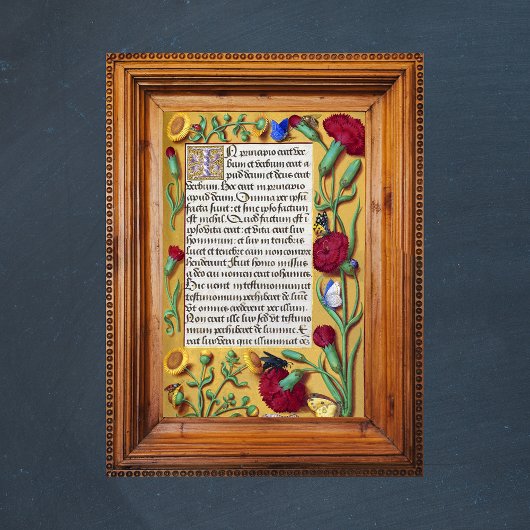 In principio erat ver
bum et verbum erat a
pud deum et deus erat
verbum. Hoc erat in principio
apud deum. Omnia per ipsu
facta sunt: et sine ipso factum
est nichil. Quod factum est i
ipso vita erat: et vita erat lux
hominum: et lux in tenebris
lucet et tenebre eam non compre
henderunt. Fuit homo missus
a deo cui nomen erat iohannes.
Hic venit in testimonium ut
testimonium perhiberet de lumine
ut omnes crederent per illum.
Non erat ille lux sed ut testimo
nium perhiberet de lumine. E
rat lux vera que illuminat